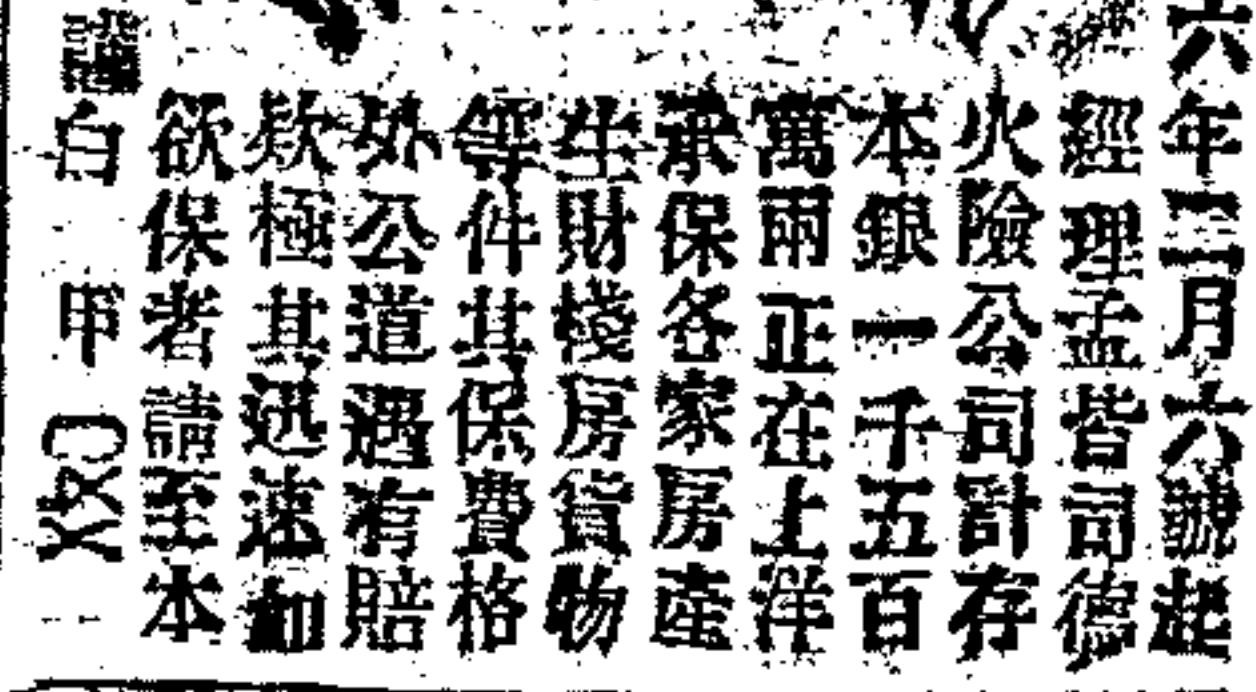 六年三月六號起
經理孟皆司德
火險公司計存
本銀一千五百
萬兩正在上洋
承保各家房產
生財棧房貨物
等件其保費格
外公道遇有賠
款極其迅速如
欲保者請至本
謹白 甲